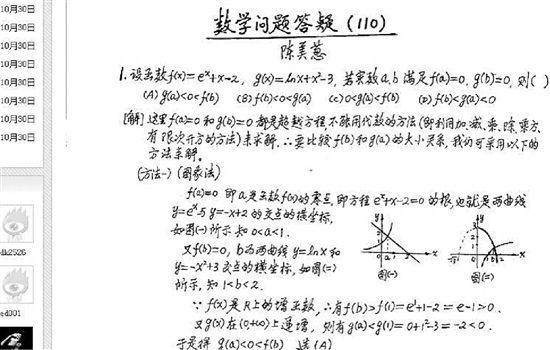 10月30日
10月30日
10月30日
10月30日
10月30日
10月30日
10月30日
数学问题答疑(110)
陈美蕙
1.设函数f(x)=eˣ+x-2, g(x)=lnx+x²-3, 若实数a,b满足f(a)=0, g(b)=0, 则( )
(A) g(a)<0<f(b) (B) f(b)<0<g(a) (C) 0<g(a)<f(b) (D) f(b)<g(a)<0
[解] 这里f(a)=0和g(b)=0都是超越方程,不能用代数的方法(即利用加、减、乘、除、乘方、
有限次开方的方法)来求解,∴要比较f(b)和g(a)的大小关系,我们可采用以下的
方法来解。
(方法一)(图象法)
f(a)=0 即a是函数f(x)的零点,即方程eˣ+x-2=0的根,也就是两曲线
y=eˣ与y=-x+2的交点的横坐标,
如图(一)所示,知0<a<1.
又f(b)=0, b为两曲线y=lnx和
y=-x²+3交点的横坐标,如图(二)
所示,知1<b<2.
∵f(x)是R上的增函数,∴有f(b)>f(1)=e¹+1-2=e-1>0.
又g(x)在(0,+∞)上递增,则有g(a)<g(1)=0+1²-3=-2<0.
于是得 g(a)<0<f(b) 选(A)
y
2
0
a
1
2
x
图(一)
y
3
0
1
b
2
x
图(二)
dk2526